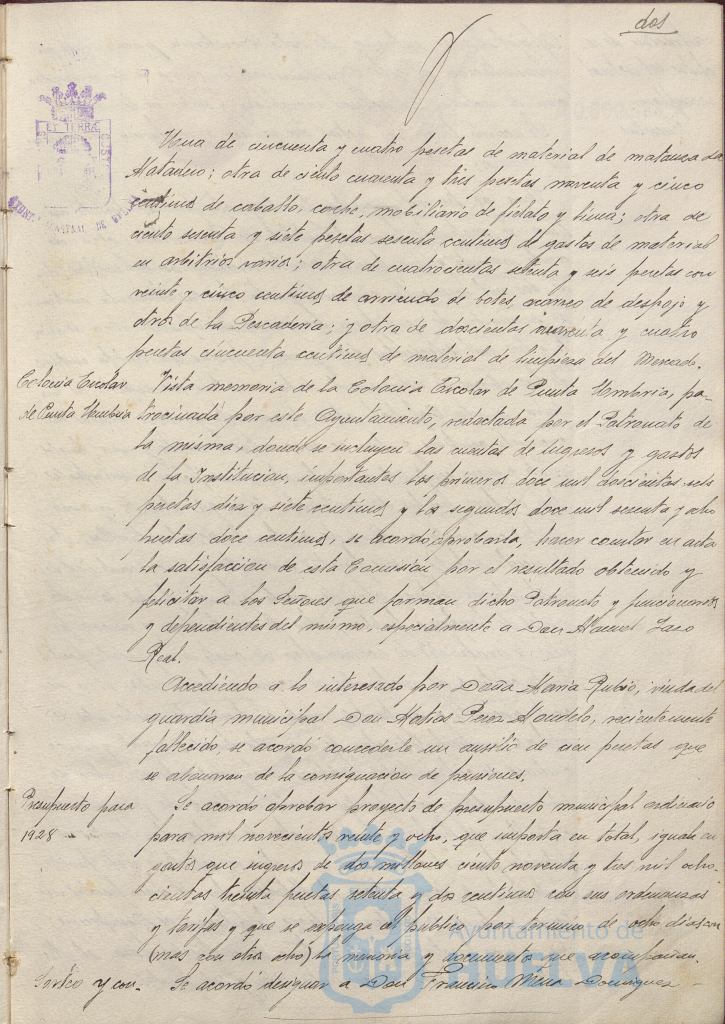 dos
Una de cincuenta y cuatro pesetas de material de matanza del
Matadero; otra de ciento cuarenta y tres pesetas noventa y cinco
centimos de caballo, coche, mobiliario de fielato y linea; otra de
ciento sesenta y siete pesetas sesenta centimos de gastos de material
en arbitrios varios; otra de cuatrocientas setenta y seis pesetas con
veinte y cinco centimos de arriendo de botes, acarreo de despojo y
otros de la Pescaderia; y otra de doscientas noventa y cuatro
pesetas cincuenta centimos de material de limpieza del Mercado.
Colonia Escolar
de Punta Umbria
Vista memoria de la Colonia Escolar de Punta Umbria, pa-
trocinada por este Ayuntamiento, redactada por el Patronato de
la misma, donde se incluyen las cuentas de ingresos y gastos
de la Institucion, importantes los primeros doce mil doscientas seis
pesetas diez y siete centimos y los segundos doce mil sesenta y ocho
pesetas doce centimos, se acordó aprobarla, hacer constar en acta
la satisfaccion de esta Comisión por el resultado obtenido y
felicitar a los Señores que forman dicho Patronato y funcionarios
y dependientes del mismo, especialmente a Don Manuel
Real.
Accediendo a lo interesado por Doña Maria Rubio, viuda del
guardia municipal Don Matias Perez Mondelo, recientemente
fallecido, se acordó concederle un auxilio de cien pesetas que
se abonaran de la consignacion de pensiones.
Presupuesto para
1928
Se acordó aprobar proyecto de presupuesto municipal ordinario
para mil novecientos veinte y ocho, que importa en total, igual en
gastos que ingresos de dos millones ciento noventa y tres mil ocho-
cientas treinta pesetas setenta y dos centimos con sus ordenanzas
y tarifas y que se exponga al publico por termino de ocho dias con
(mas con otros ocho) la memoria y documentos que acompañan.
Sorteo y con-
Se acordó designar a Don Francisco Mena Dominguez
ET TERRÆ
Ayuntamiento de
HUELVA